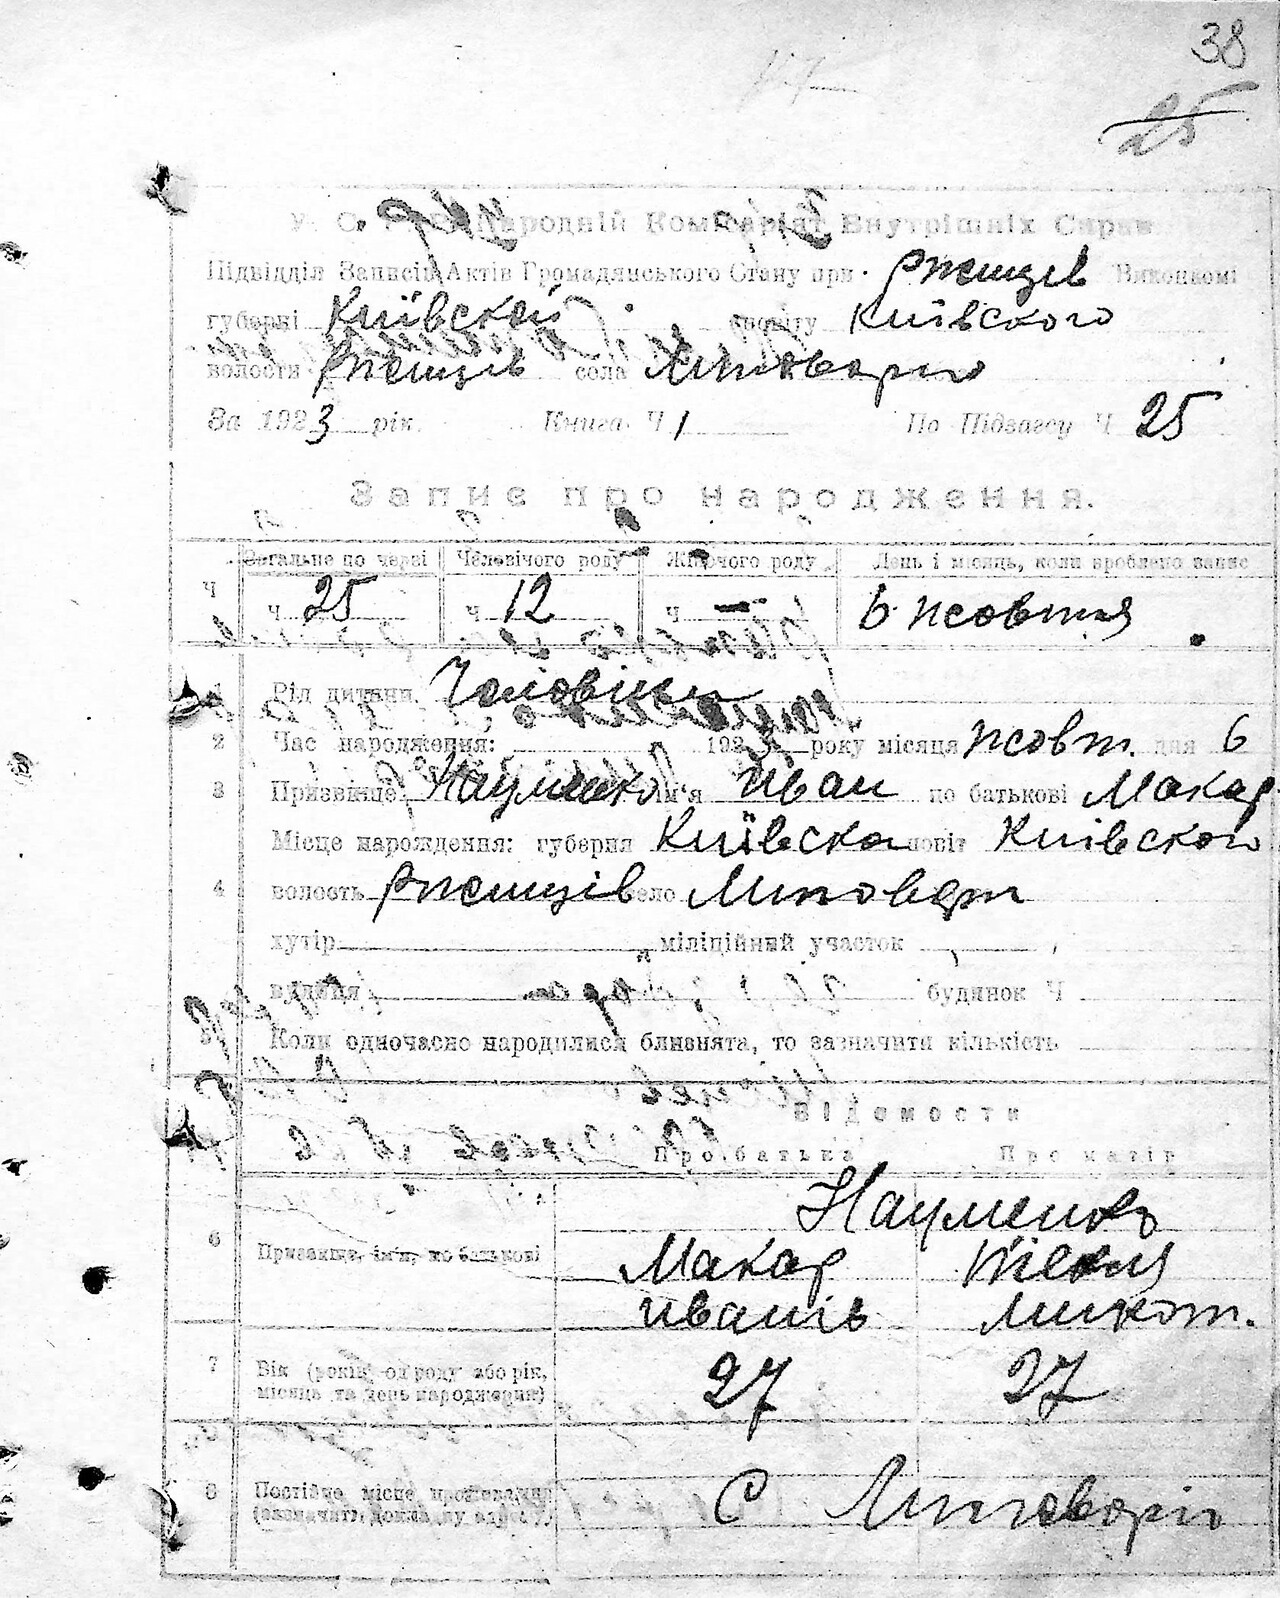 38
25
У. С. Р. Р. Народній Комісаріат Внутрішніх Справ
Підвідділ Записів Актів Громадянського Стану при Ржищів Виконкомі
губерні Київской повіту Київского
волости Ржищів села
За 1923 рік. Книга Ч 1 По Підзагсу Ч 25
Запис про народження.
Загальне по черзі Чоловічого роду Жіночого роду День і місяць, коли зроблено запис
Ч ч 25 ч 12 ч — 6 жовтня
1 Рід дитини
2 Час народження: 1923 року місяця жовт. дня 6
3 Призвіще Науменко ім'я Иван по батькові Макар
Місце народження: губерня Київска повіт Київского
4 волость Ржищів село
хутір міліційний участок
вулиця будинок Ч
5 Коли одночасно народилися близнята, то зазначити кількість
Відомости
Про батька Про матір
Науменко
6 Призвіще, ім'я, по батькові Макар Текля
Иванів
7 Вік (років од роду або рік, 27 27
місяць та день народження)
8 Постійне місце проживання С
(зазначити докладну адресу)